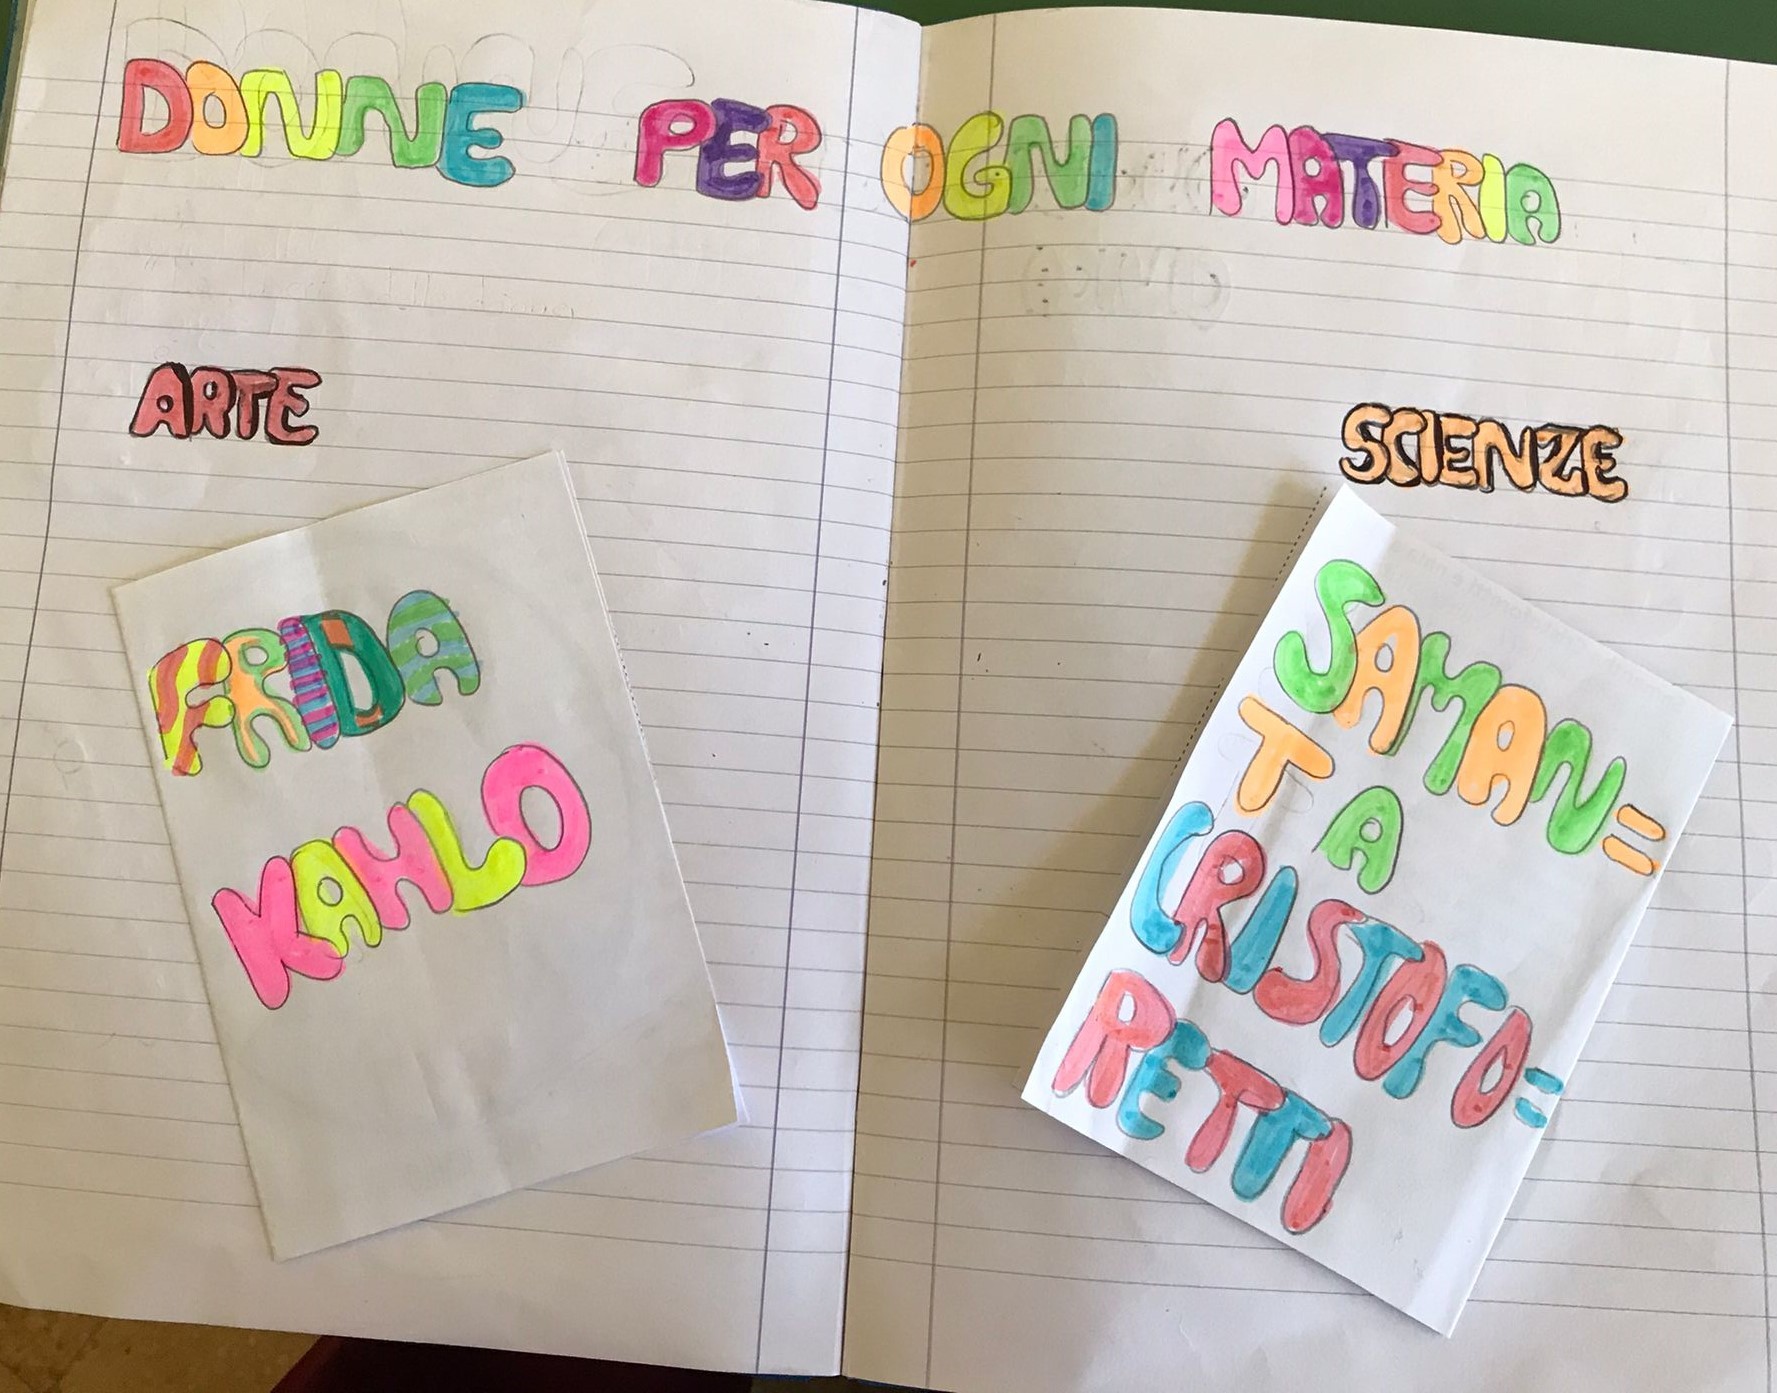 DONNE PER OGNI MATERIA
ARTE
FRIDA
KAHLO
SCIENZE
SAMAN=
TA
CRISTOFO=
RETTI